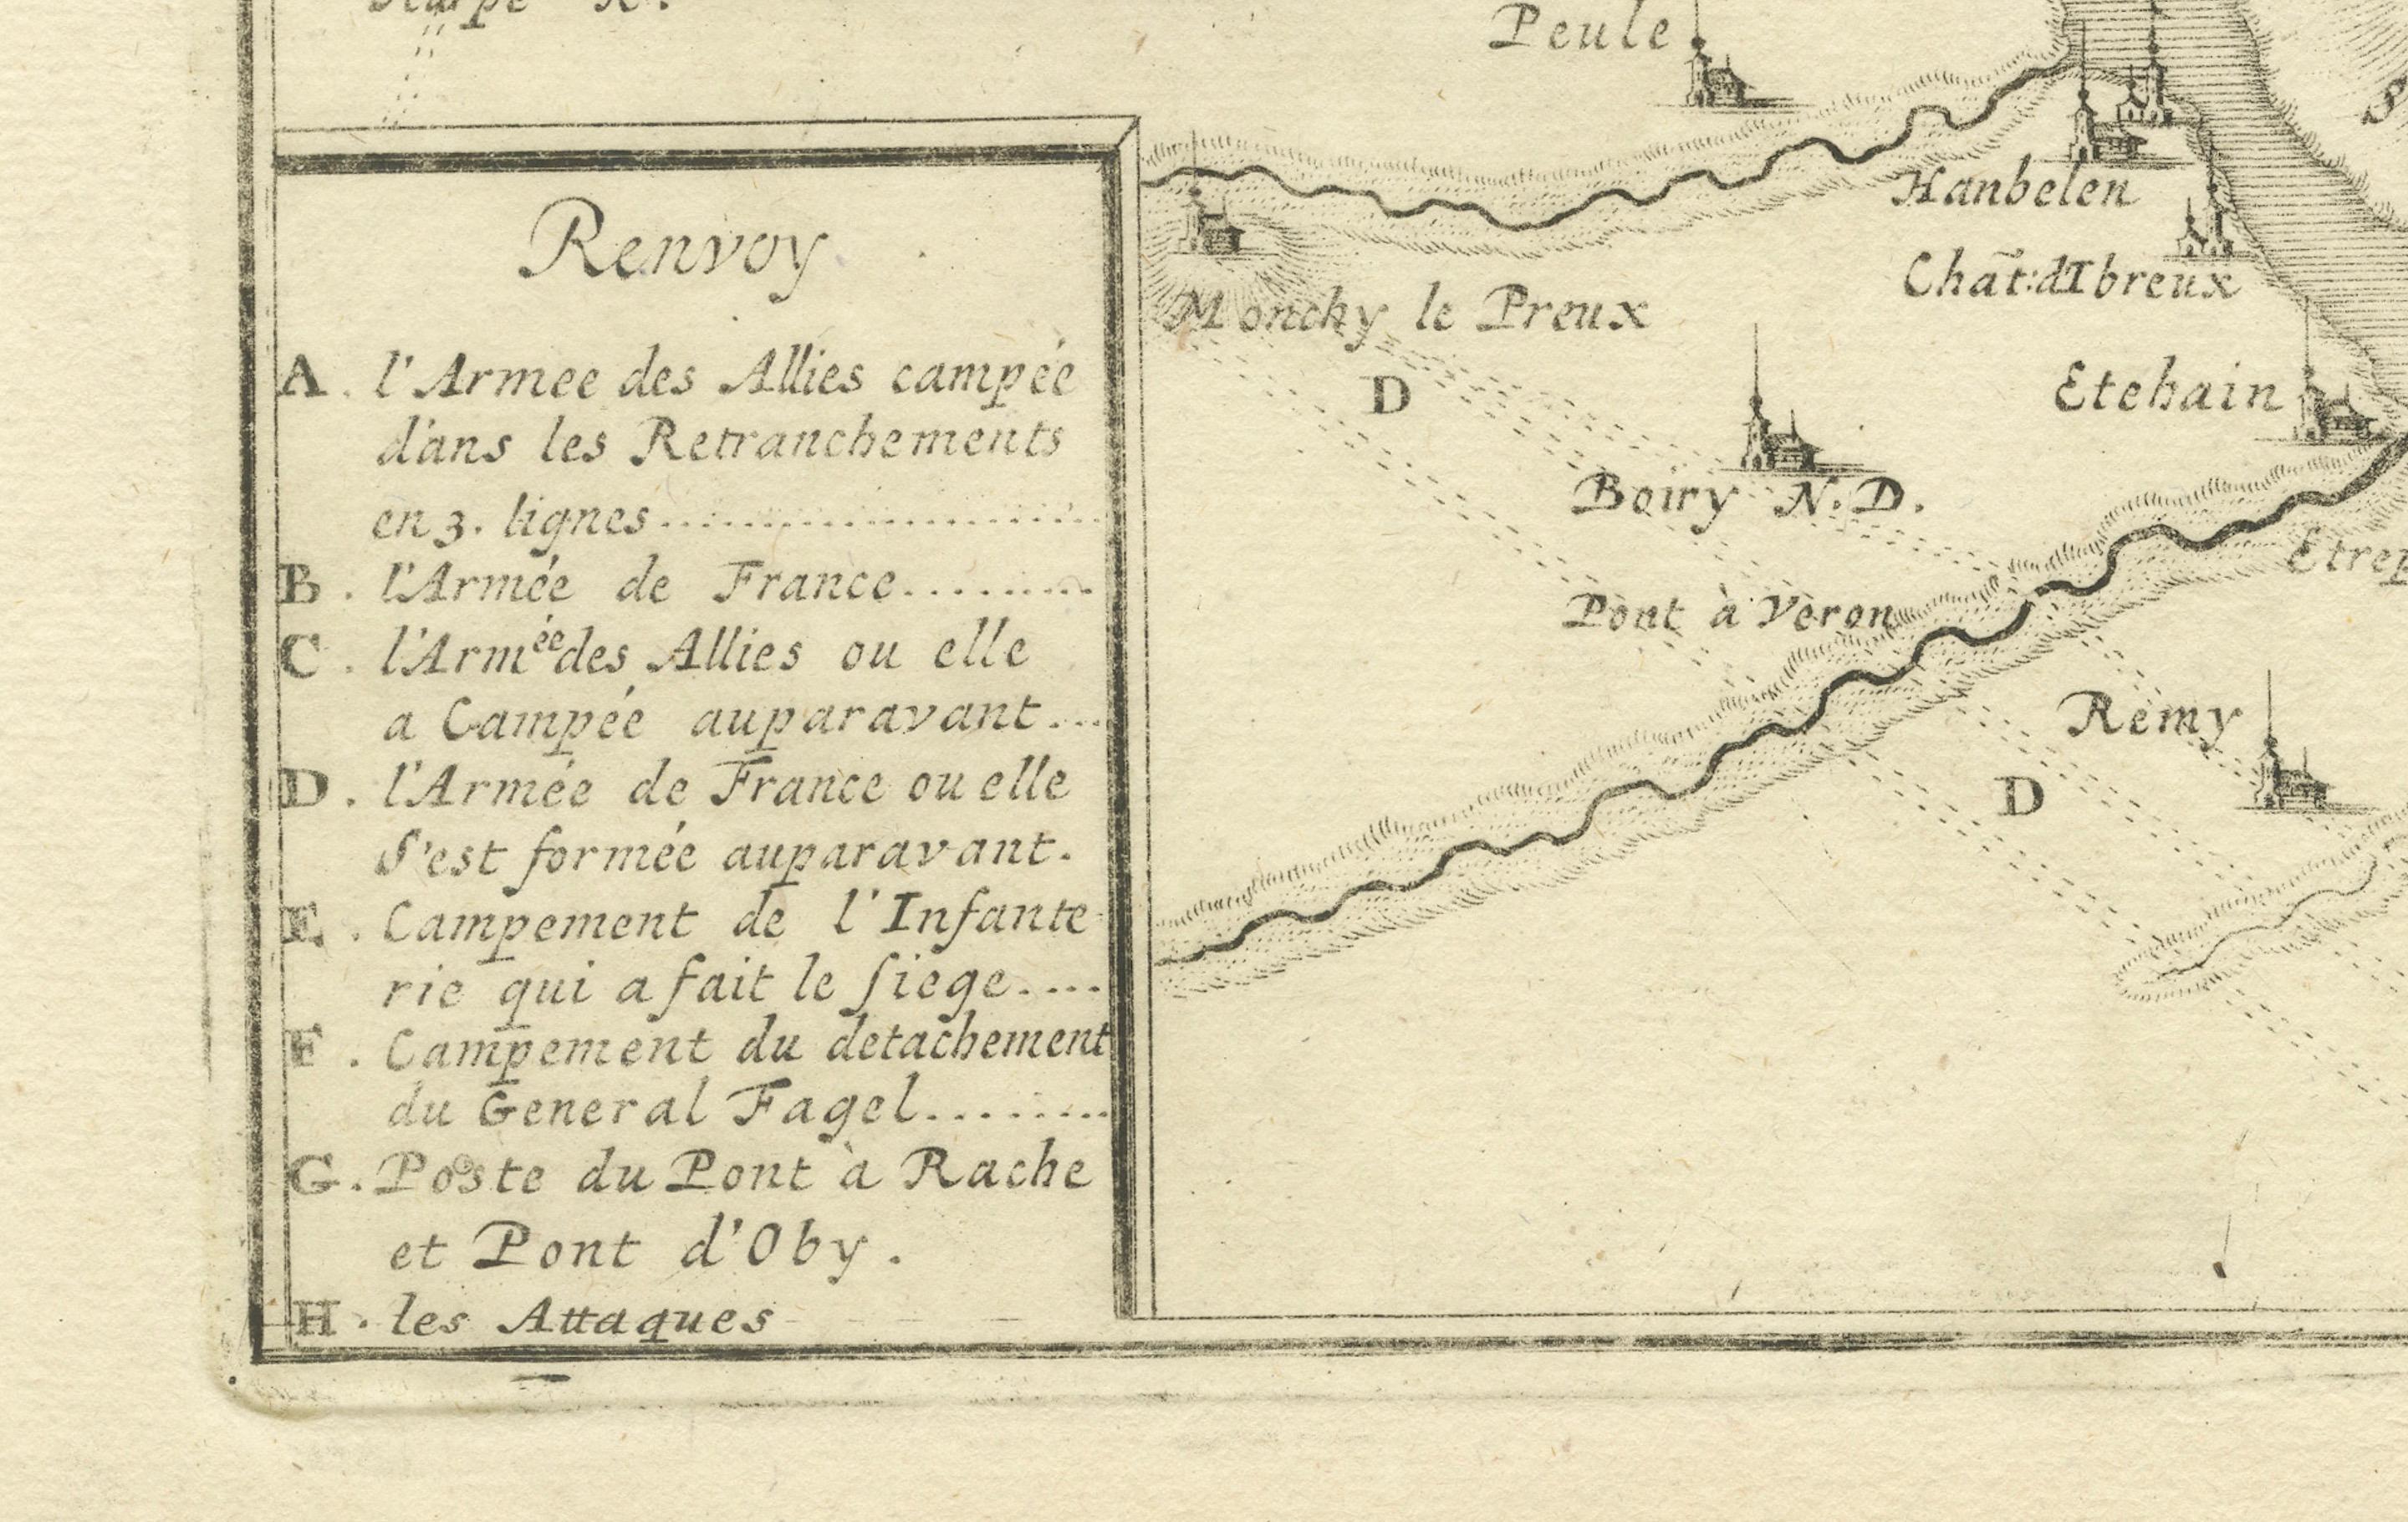 Peule
Hanbelen
Chat: d'Ibreux
Monchy le Preux
D
Etehain
Boiry N. D.
Pont à Veron
Remy
D
Renvoy
A. l'Armee des Allies campée
dans les Retranchements
en 3. lignes
B. l'Armée de France
C. l'Armée des Allies ou elle
a Campée auparavant
D. l'Armée de France ou elle
S'est formée auparavant.
E. Campement de l'Infante
rie qui a fait le siege
F. Campement du detachement
du General Fagel
G. Poste du Pont à Rache
et Pont d'Oby.
H. les Attaques